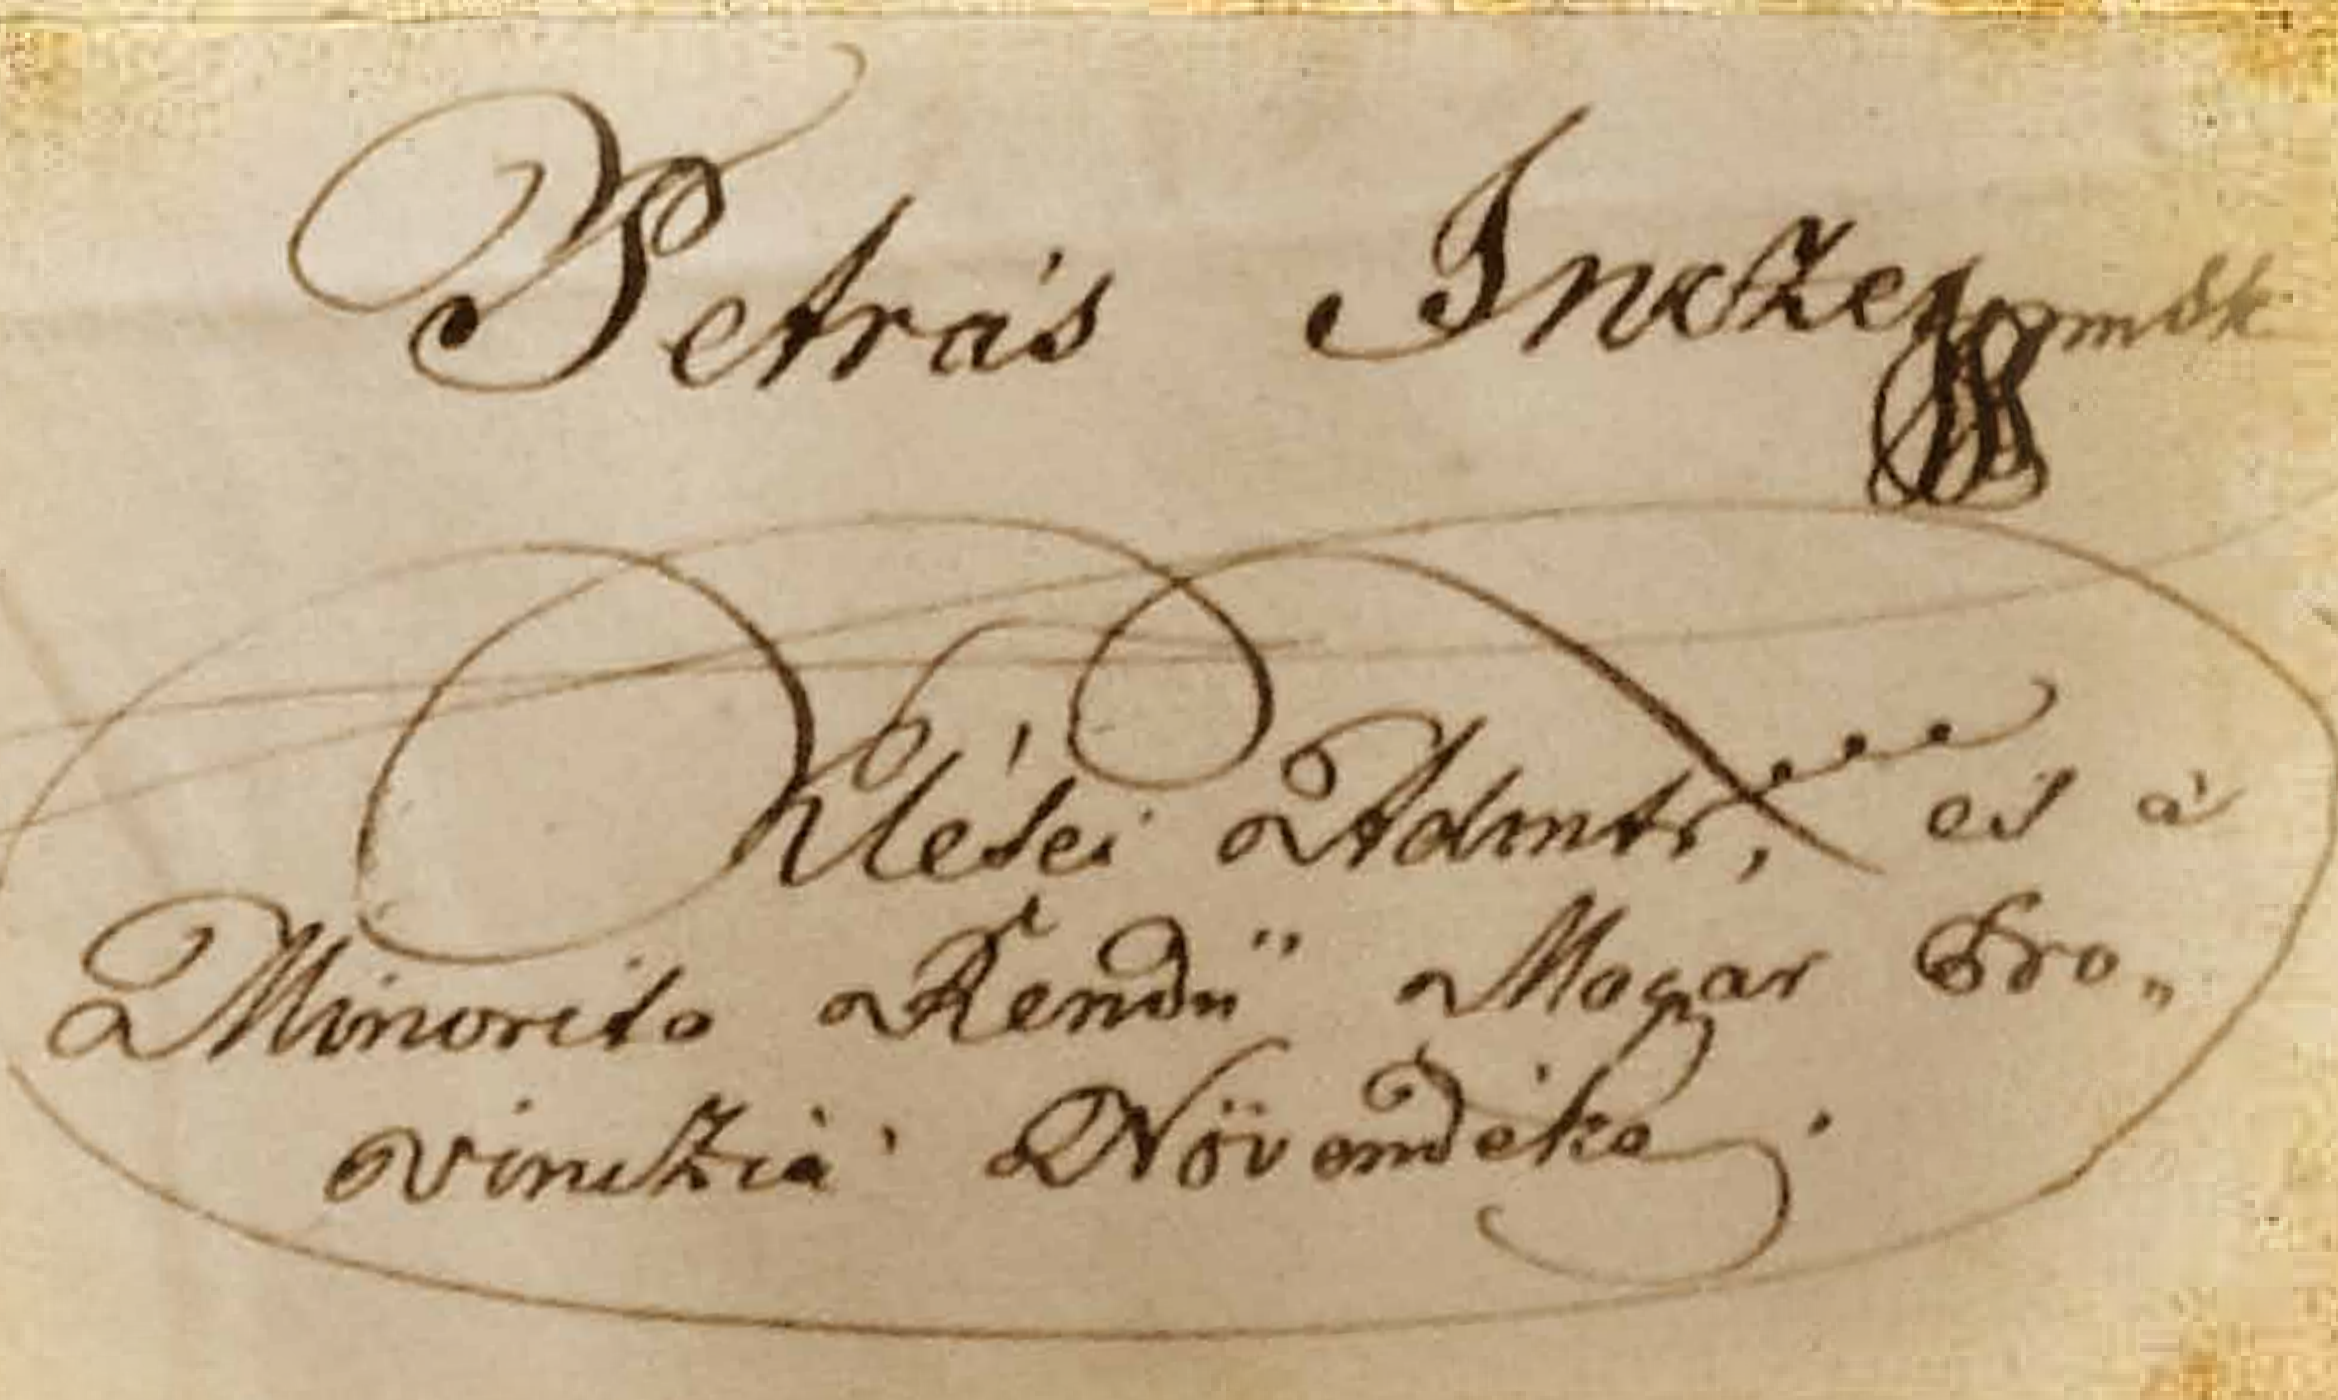 Petrás Incze mk
Klései Admtr, és a'
Minorita Rendü Magyar Pro„
vincziá' Növendéke.